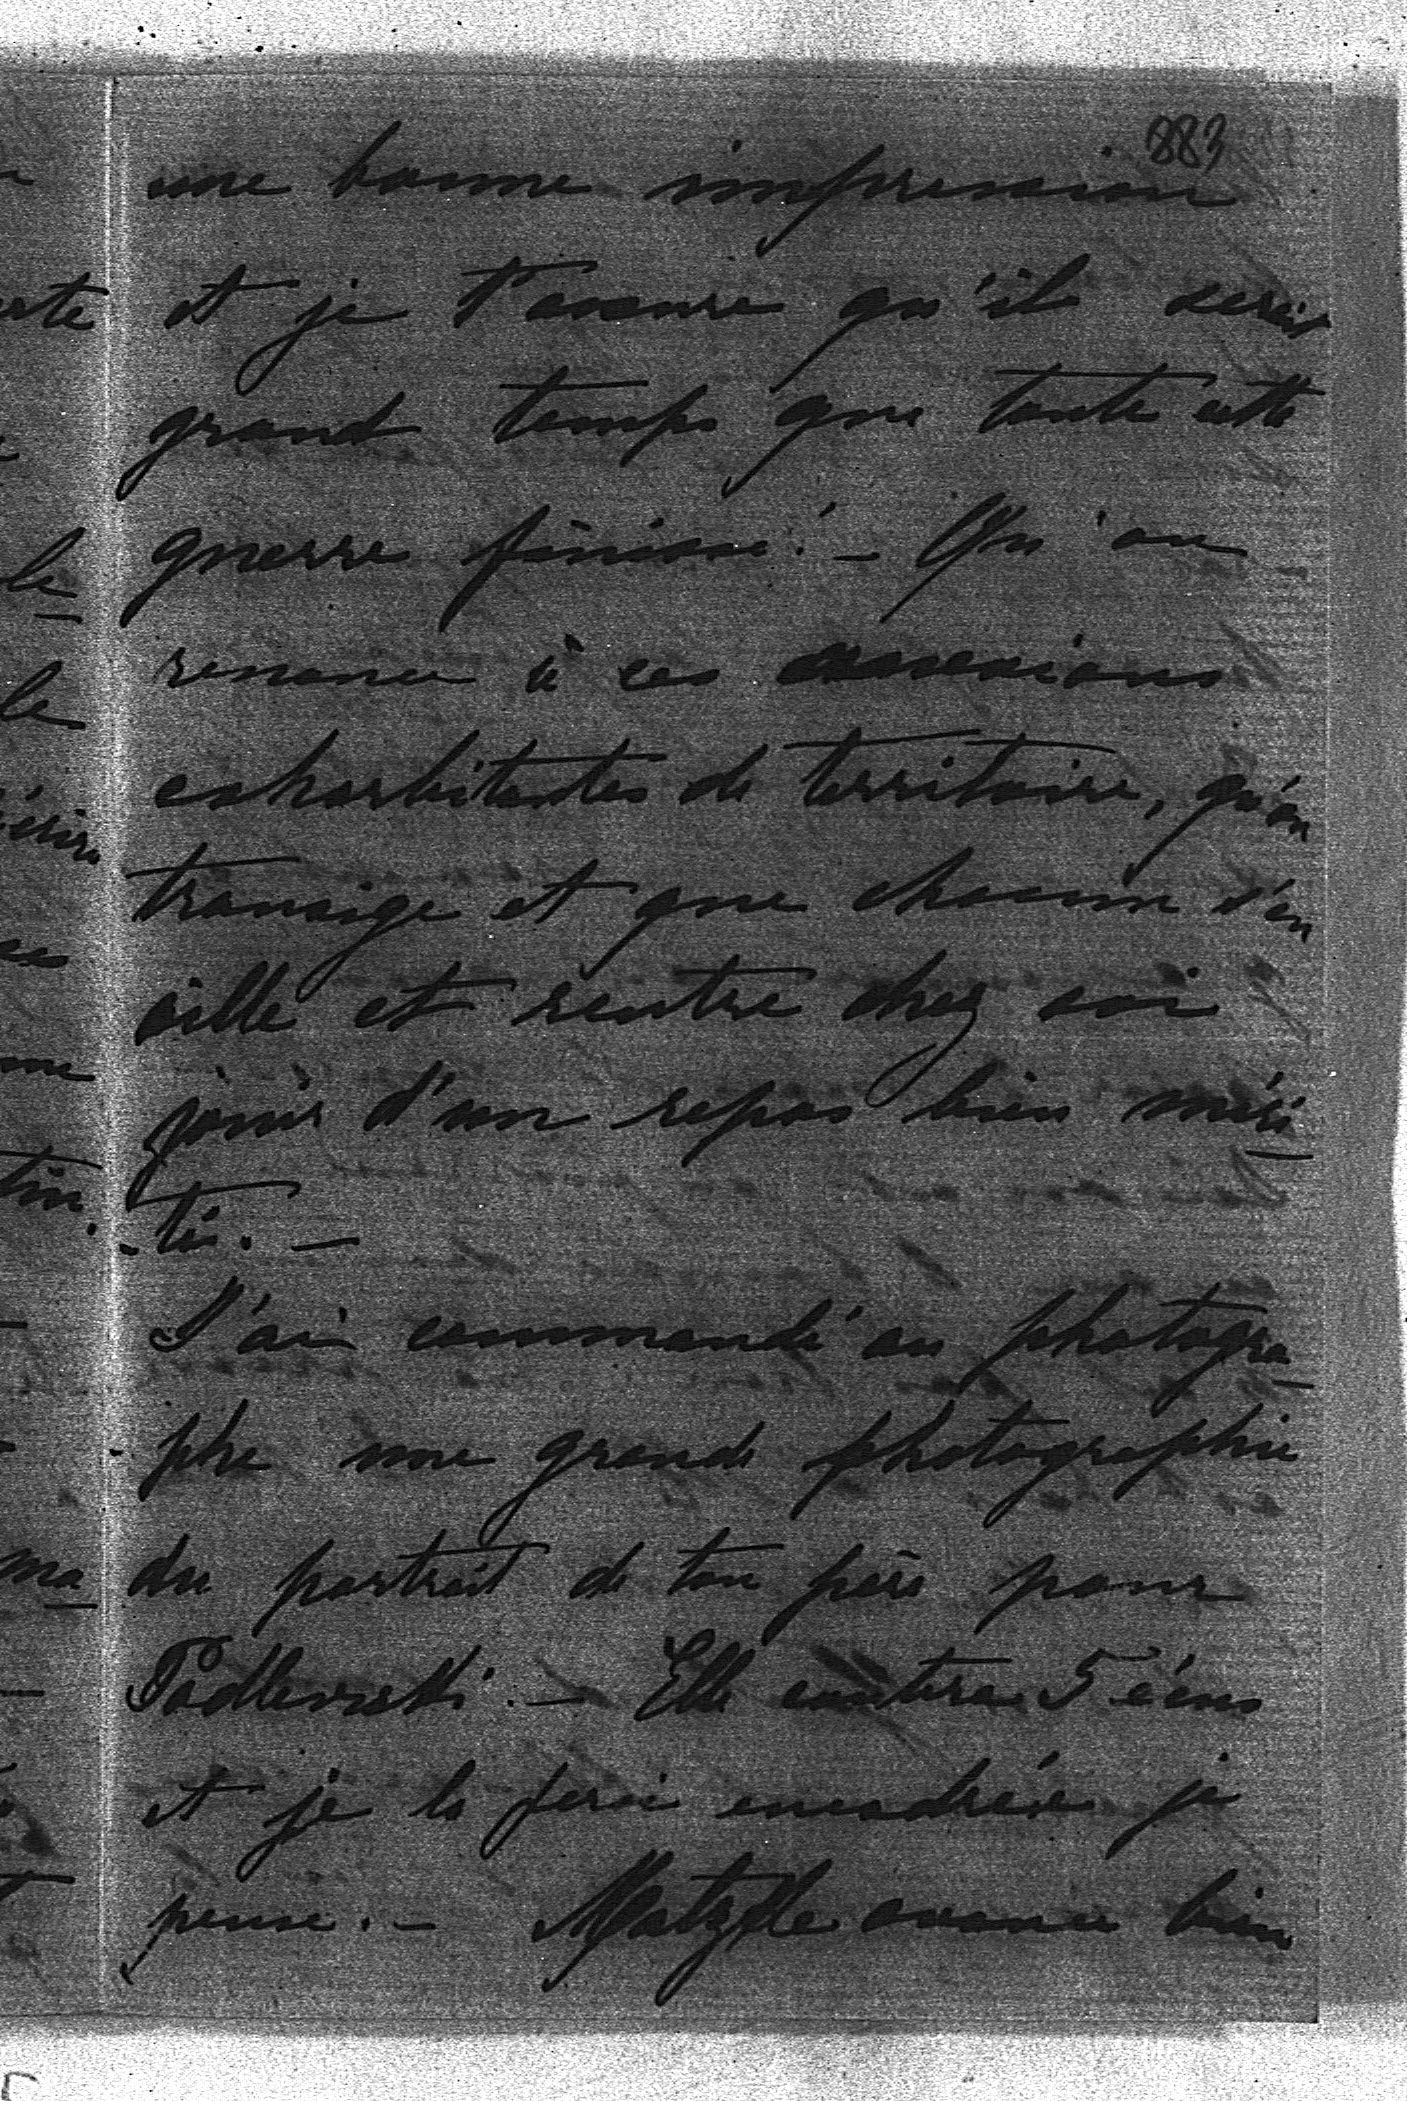 883
une bonne impression
et je t'assure qu'il serait
grand temps que toute cette
guerre finisse! – Qu'on
renonce à ces annexions
exhorbitantes de territoire, qu'on
transige et que chacun s'en
aille et rentre chez soi
jouir d'un repos bien méri-
-té. –
J'ai commandé au photogra-
-phe une grande photographie
du portrait de ton père pour
Padlewski. – Elle coutera 5 écus
et je la ferai encadrée je
pense. – avance bien